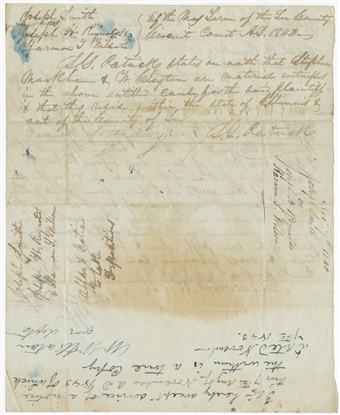 Joseph Smith
vs
Joseph H. Reynolds &
Harmon T. Wilson
Of the May Term of the Lee County
Circuit Court A.D. 1844
S. G. Patrick states on oath that Stephen
Markham & W. Clayton are material witnesses
in the above entitled cause for the said plaintiff
& that they reside within the state of Illinois &
out of the County of Lee
S. G. Patrick
Joseph Smith
vs
Joseph H. Reynolds
Harmon T. Wilson
Joseph Smith
Joseph H. Reynolds
& Harmon T. Wilson
Affdt & Notice
to take
Depositions
I hereby accept service of a notice
this 7th day of November A.D. 1843 of which
the within is a true copy
Dated November
7th 1843